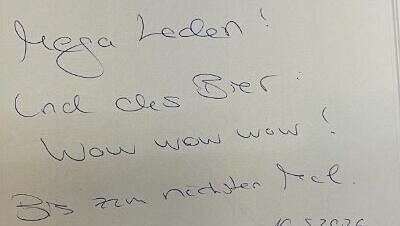 Mega Laden!
Und das Bier:
Wow wow wow!
Bis zum nächsten Mal.